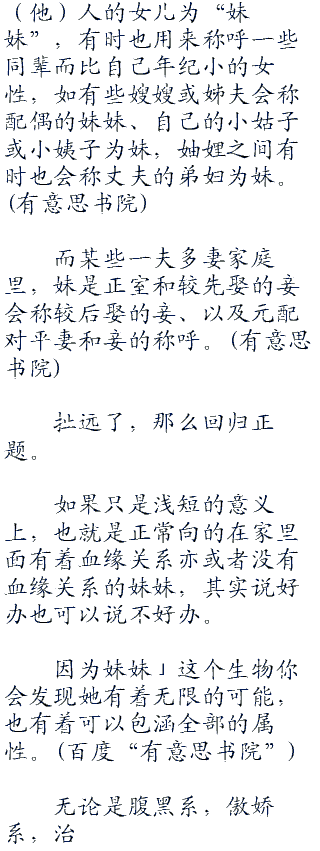 （他）人的女儿为“妹
妹”，有时也用来称呼一些
同辈而比自己年纪小的女
性，如有些嫂嫂或姊夫会称
配偶的妹妹、自己的小姑子
或小姨子为妹，妯娌之间有
时也会称丈夫的弟妇为妹。
(有意思书院)
而某些一夫多妻家庭
里，妹是正室和较先娶的妾
会称较后娶的妾、以及元配
对平妻和妾的称呼。(有意思
书院)
扯远了，那么回归正
题。
如果只是浅短的意义
上，也就是正常向的在家里
面有着血缘关系亦或者没有
血缘关系的妹妹，其实说好
办也可以说不好办。
因为妹妹」这个生物你
会发现她有着无限的可能，
也有着可以包涵全部的属
性。(百度“有意思书院”)
无论是腹黑系，傲娇
系，治